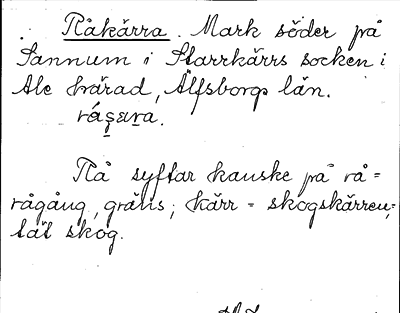 Råkärra. Mark söder på
Sannum i Starrkärrs socken i
Ale härad, Älfsborgs län.
Rå syftar kanske på rå =
rågång, gräns; kärr = skogskärren,
tät skog.